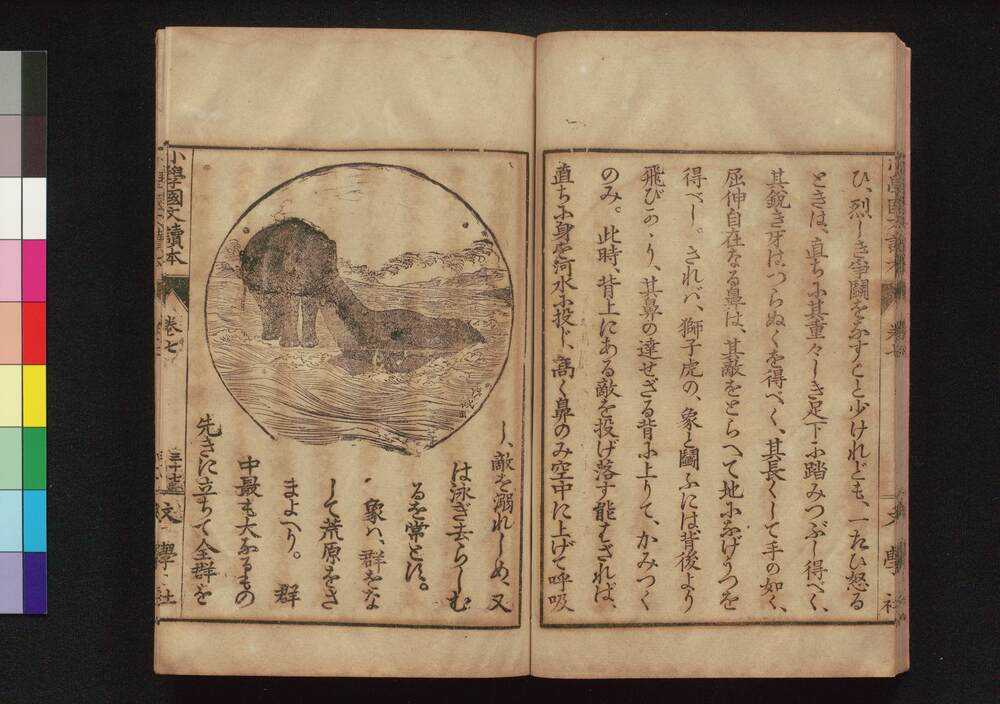 ひ、烈しき爭鬪をなすこと少けれども、一たひ怒る
ときは、直ちに其重々しき足下に踏みつぶし得べく、
其鋭き牙はつらぬくを得べく、其長くして手の如く、
屈伸自在なる鼻は、其敵をとらへて地になげうつを
得べし。されバ、獅子虎の、象と鬪ふには背後より
飛びかゝり、其鼻の達せざる背に上りて、かみつく
のみ。此時、背上にある敵を投げ落す能はされば、
直ちに身を河水に投じ、高く鼻のみ空中に上げて呼吸
し、敵を溺れしめ、又
は泳ぎ去らしむ
るを常とす。
象ハ、群をな
して荒原をさ
まよへり。群
中最も大なるもの
先きに立ちて全群を
小學國文讀本
卷七
三十七
文學社